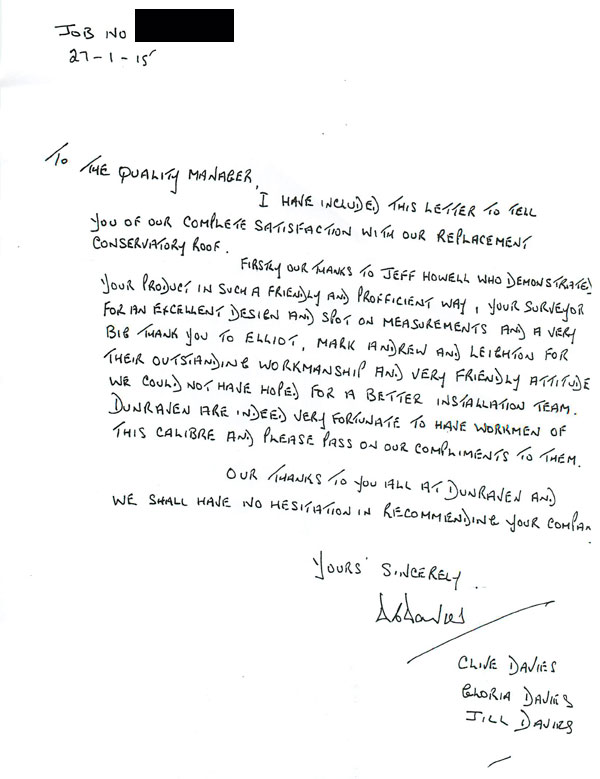 JOB NO
27-1-15
TO THE QUALITY MANAGER,
I HAVE INCLUDED THIS LETTER TO TELL
YOU OF OUR COMPLETE SATISFACTION WITH OUR REPLACEMENT
CONSERVATORY ROOF.
FIRSTLY OUR THANKS TO JEFF HOWELL WHO DEMONSTRATED
YOUR PRODUCT IN SUCH A FRIENDLY AND PROFFICIENT WAY, YOUR SURVEYOR
FOR AN EXCELLENT DESIGN AND SPOT ON MEASUREMENTS AND A VERY
BIG THANK YOU TO ELLIOT, MARK ANDREW AND LEIGHTON FOR
THEIR OUTSTANDING WORKMANSHIP AND VERY FRIENDLY ATTITUDE
WE COULD NOT HAVE HOPED FOR A BETTER INSTALLATION TEAM.
DUNRAVEN ARE INDEED VERY FORTUNATE TO HAVE WORKMEN OF
THIS CALIBRE AND PLEASE PASS ON OUR COMPLIMENTS TO THEM.
OUR THANKS TO YOU ALL AT DUNRAVEN AND
WE SHALL HAVE NO HESITATION IN RECOMMENDING YOUR COMPAN
YOURS SINCERELY.
CLIVE DAVIES
GLORIA DAVIES
JILL DAVIES